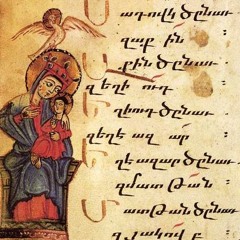 Սադովկ ծընաւ
զաք ին
Աքին ծընաւ
զեղի ուդ
Եղիուդ ծընաւ
զեղե ազ ար
Եղէ ազար ծընաւ
զմատ թան
Մատթան ծընաւ
զյակով բ